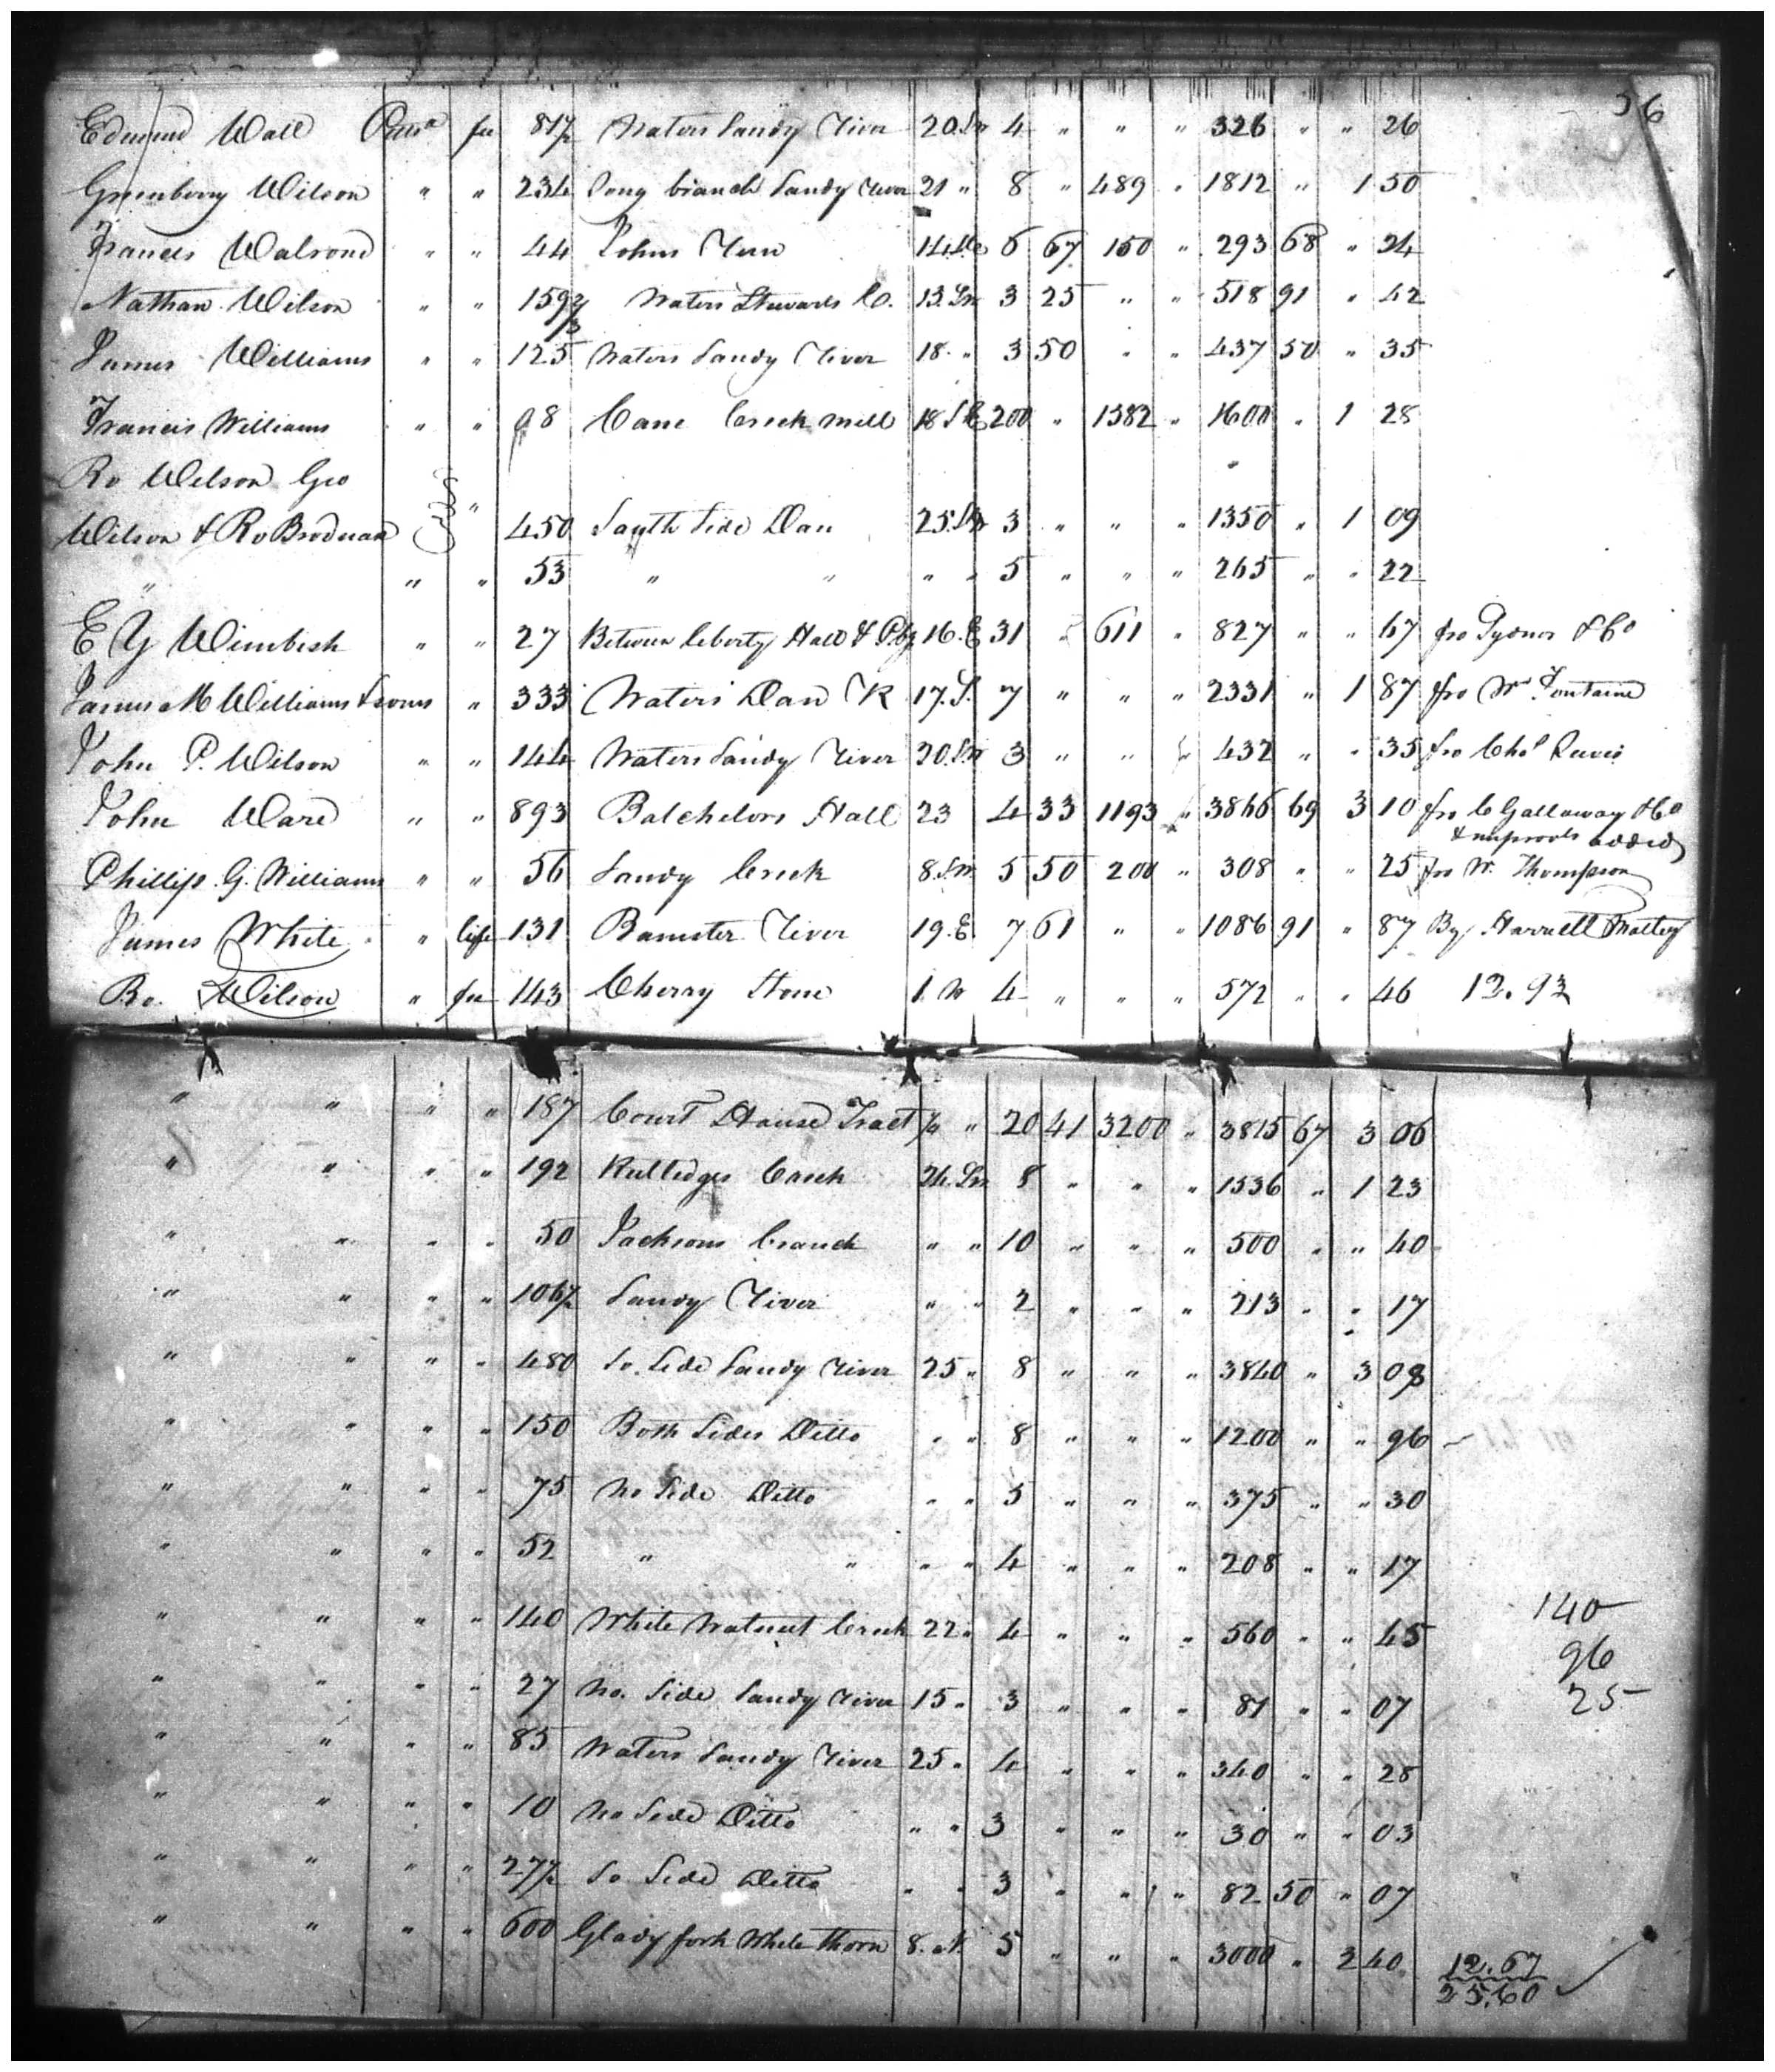 56
Edmund Wall Pitts^a fee 81 1/2 Waters Sandy River 20 SW 4 " " " 326 " " 26
Greenberry Wilson " " 234 Long branch Sandy River 21 " 8 " 489 " 1812 " 1 50
Francis Walrond " " 44 Johns Run 14 6 67 150 " 293 68 " 24
Nathan Wilson " " 159 2/3 Waters Stewards C. 13 SW 3 25 " " 518 91 " 42
James Williams " " 125 Waters Sandy River 18 " 3 50 " " 437 50 " 35
Francis Williams " " 8 Cane Creek Mill 18 SE 200 " 1382 " 1600 " 1 28
Ro Wilson Geo
Wilson & Ro Brodnax " 450 South Side Dan 25 SW 3 " " " 1350 " 1 09
" " " 53 " " " " 5 " " " 265 " " 22
E Y Wimbish " " 27 Between Liberty Hall & 16 E 31 " 611 " 827 " " 67 fro Tysnor & Co
James M Williams & sons " 333 Waters Dan R 17 S. 7 " " " 2331 " 1 87 fro W^m Fontaine
John P. Wilson " " 144 Waters Sandy River 20 SW 3 " " " 432 " " 35 fro Cha^s
John Ward " " 893 Batchelors Hall 23 4 33 1193 " 3866 69 3 10 fro C Gallaway & Co
& added
Phillip G. Williams " " 56 Sandy Creek 8 SW 5 50 200 " 308 " " 25 fro W. Thompson
James White " life 131 Banister River 19 E 7 61 " " 1086 91 " 87 By
Ro. Wilson " fee 143 Cherry Stone 1 W 4 " " " 572 " " 46 12.93
" " " " 187 Court House Tract " 20 41 3200 " 3815 67 3 06
" " " " 192 Rutledges Creek 24 SW 8 " " " 1536 " 1 23
" " " " 50 Jacksons branch " " 10 " " " 500 " " 40
" " " " 106 1/2 Sandy River " " 2 " " " 213 " " 17
" " " " 480 So. Side Sandy River 25 " 8 " " " 3840 " 3 08
" " " " 150 Both Sides Ditto " " 8 " " " 1200 " " 96
" " " " 75 No Side Ditto " " 5 " " " 375 " " 30
" " " " 52 " " " " 4 " " " 208 " " 17
" " " " 140 White Walnut Creek 22 " 4 " " " 560 " " 45
140
96
25
" " " " 27 No. Side Sandy River 15 " 3 " " " 81 " " 07
" " " " 85 Waters Sandy River 25 " 4 " " " 340 " " 28
" " " " 10 No Side Ditto " " 3 " " " 30 " " 03
" " " " 27 1/2 So Side Ditto " " 3 " " " 82 50 " 07
" " " " 600 Glady fork White thorn 8. N. 5 " " " 3000 " 2 40
12.67
25.60